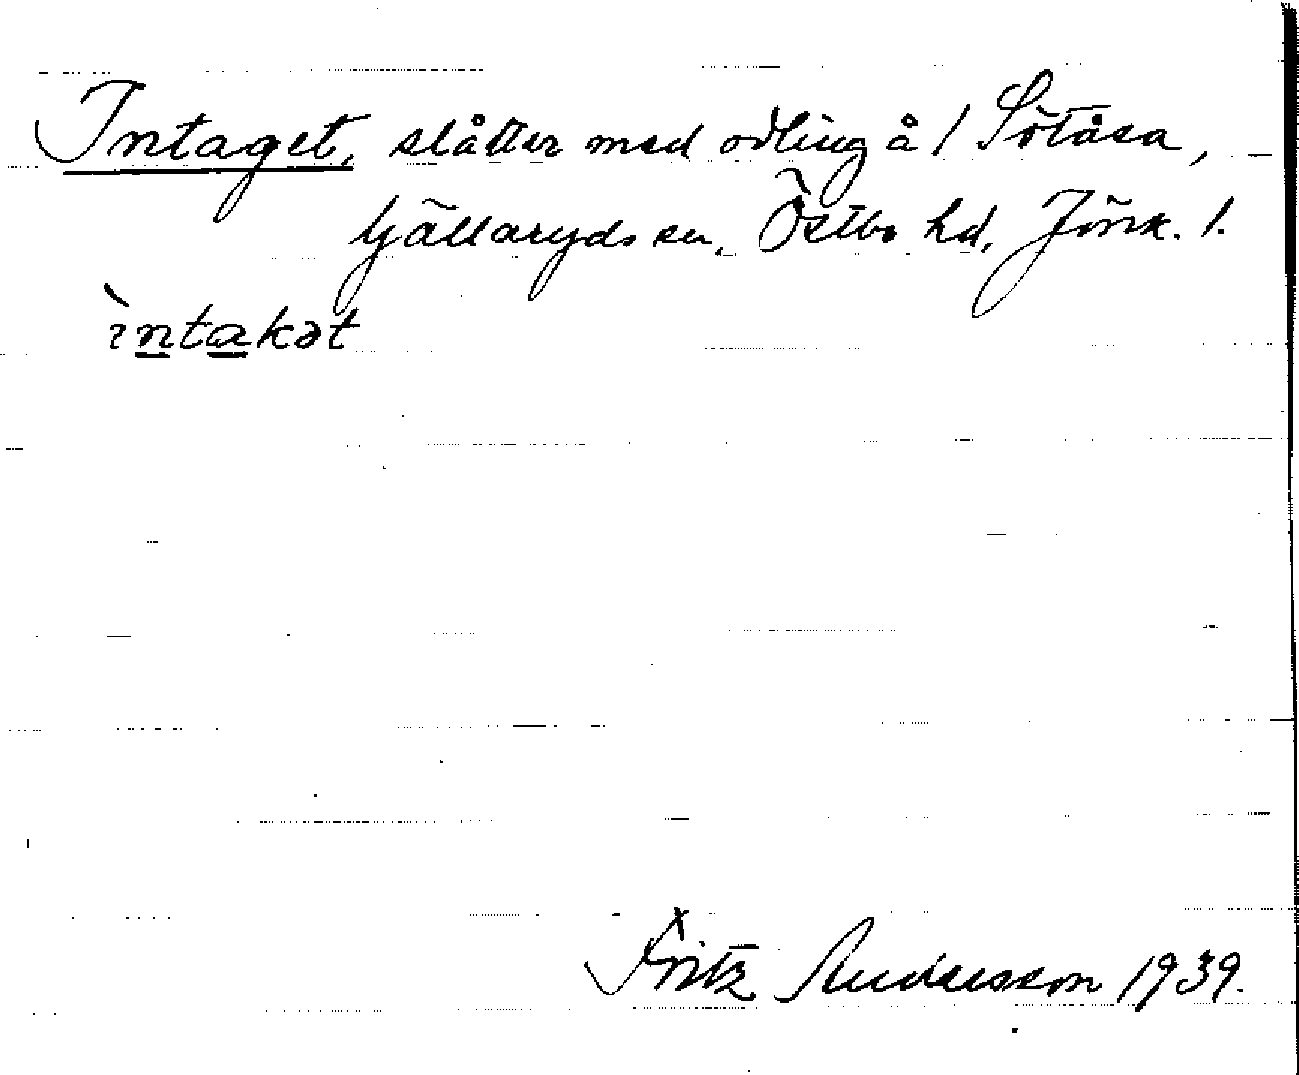 Intaget, slåtter med odling å 1 Sötåsa,
tjällaryds sn, Östbo hd, Jönk. l.
ìntakət
Fritz Andersson 1939.